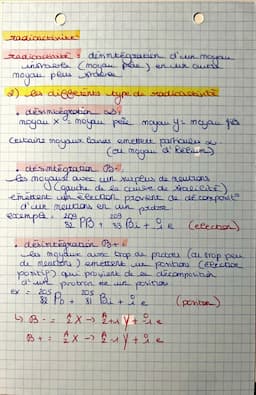 radioactivité
radioactivité : désintégration d'un noyau
instable (noyau père) en un autre
noyau plus stable
2) les différents type de radioactivité
• désintégration α :
noyau X = noyau père noyau Y = noyau fils
Certains noyaux lourds emettent particules α
(ou noyau d'hélium)
• désintégration B- :
les noyaux avec un surplus de neutrons
(gauche de la courbe de stabilité)
émettent un électron provient de décomposit°
d'un neutrons en un proton
exemple : 209 82 PB → 209 83 Bi + 0 -1 e (electron)
• désintégration B+ :
les noyaux avec trop de protons (ou trop peu
de neutrons) emettent un positon (électron
positif) qui provient de la décomposition
d'un proton en un positon.
ex = 205 82 Po → 205 81 Bi + 0 1 e (positon)
↳ B- = A Z X → A Z+1 Y + 0 -1 e
B+ = A Z X → A Z-1 Y + 0 1 e